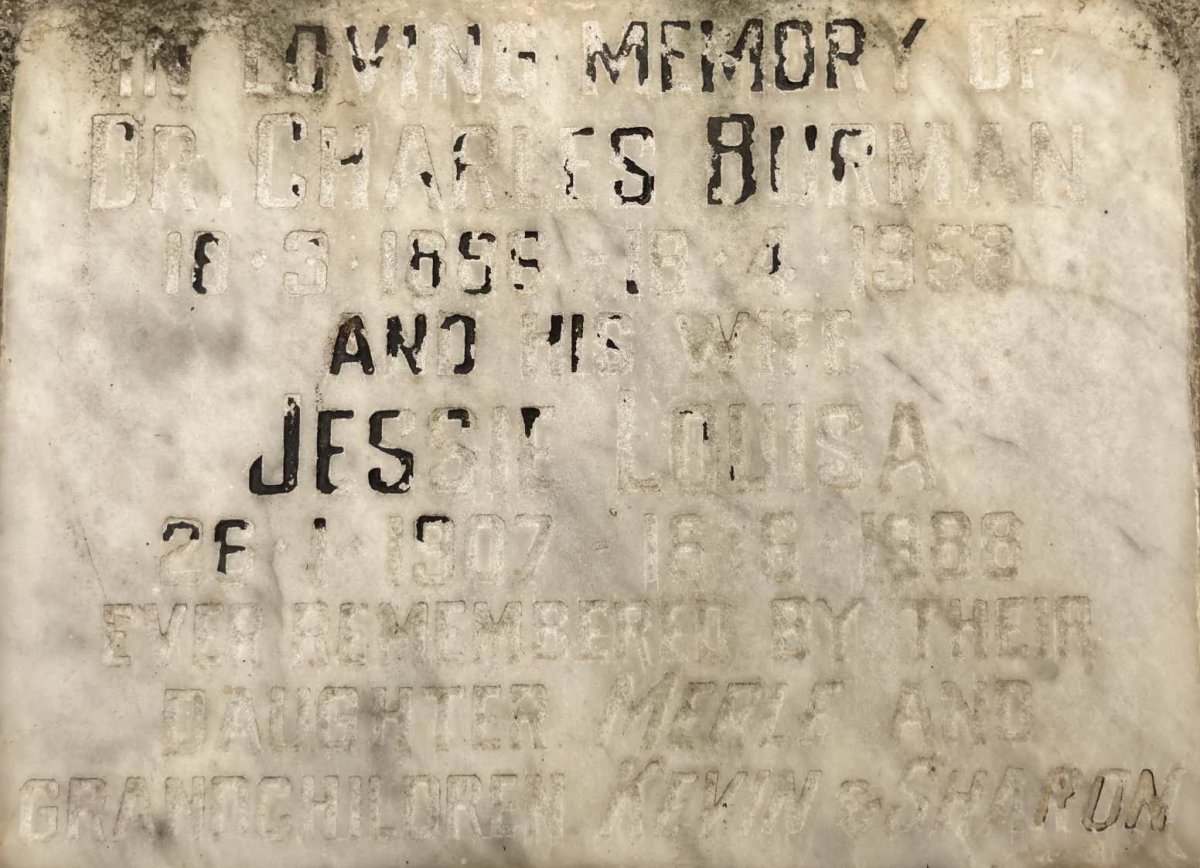 IN LOVING MEMORY OF
DR. CHARLES BURMAN
18·3·1895 - 18·4·1958
AND HIS WIFE
JESSIE LOUISA
26·1·1907 - 16·8·1988
EVER REMEMBERED BY THEIR
DAUGHTER MERLE AND
GRANDCHILDREN KEVIN & SHARON